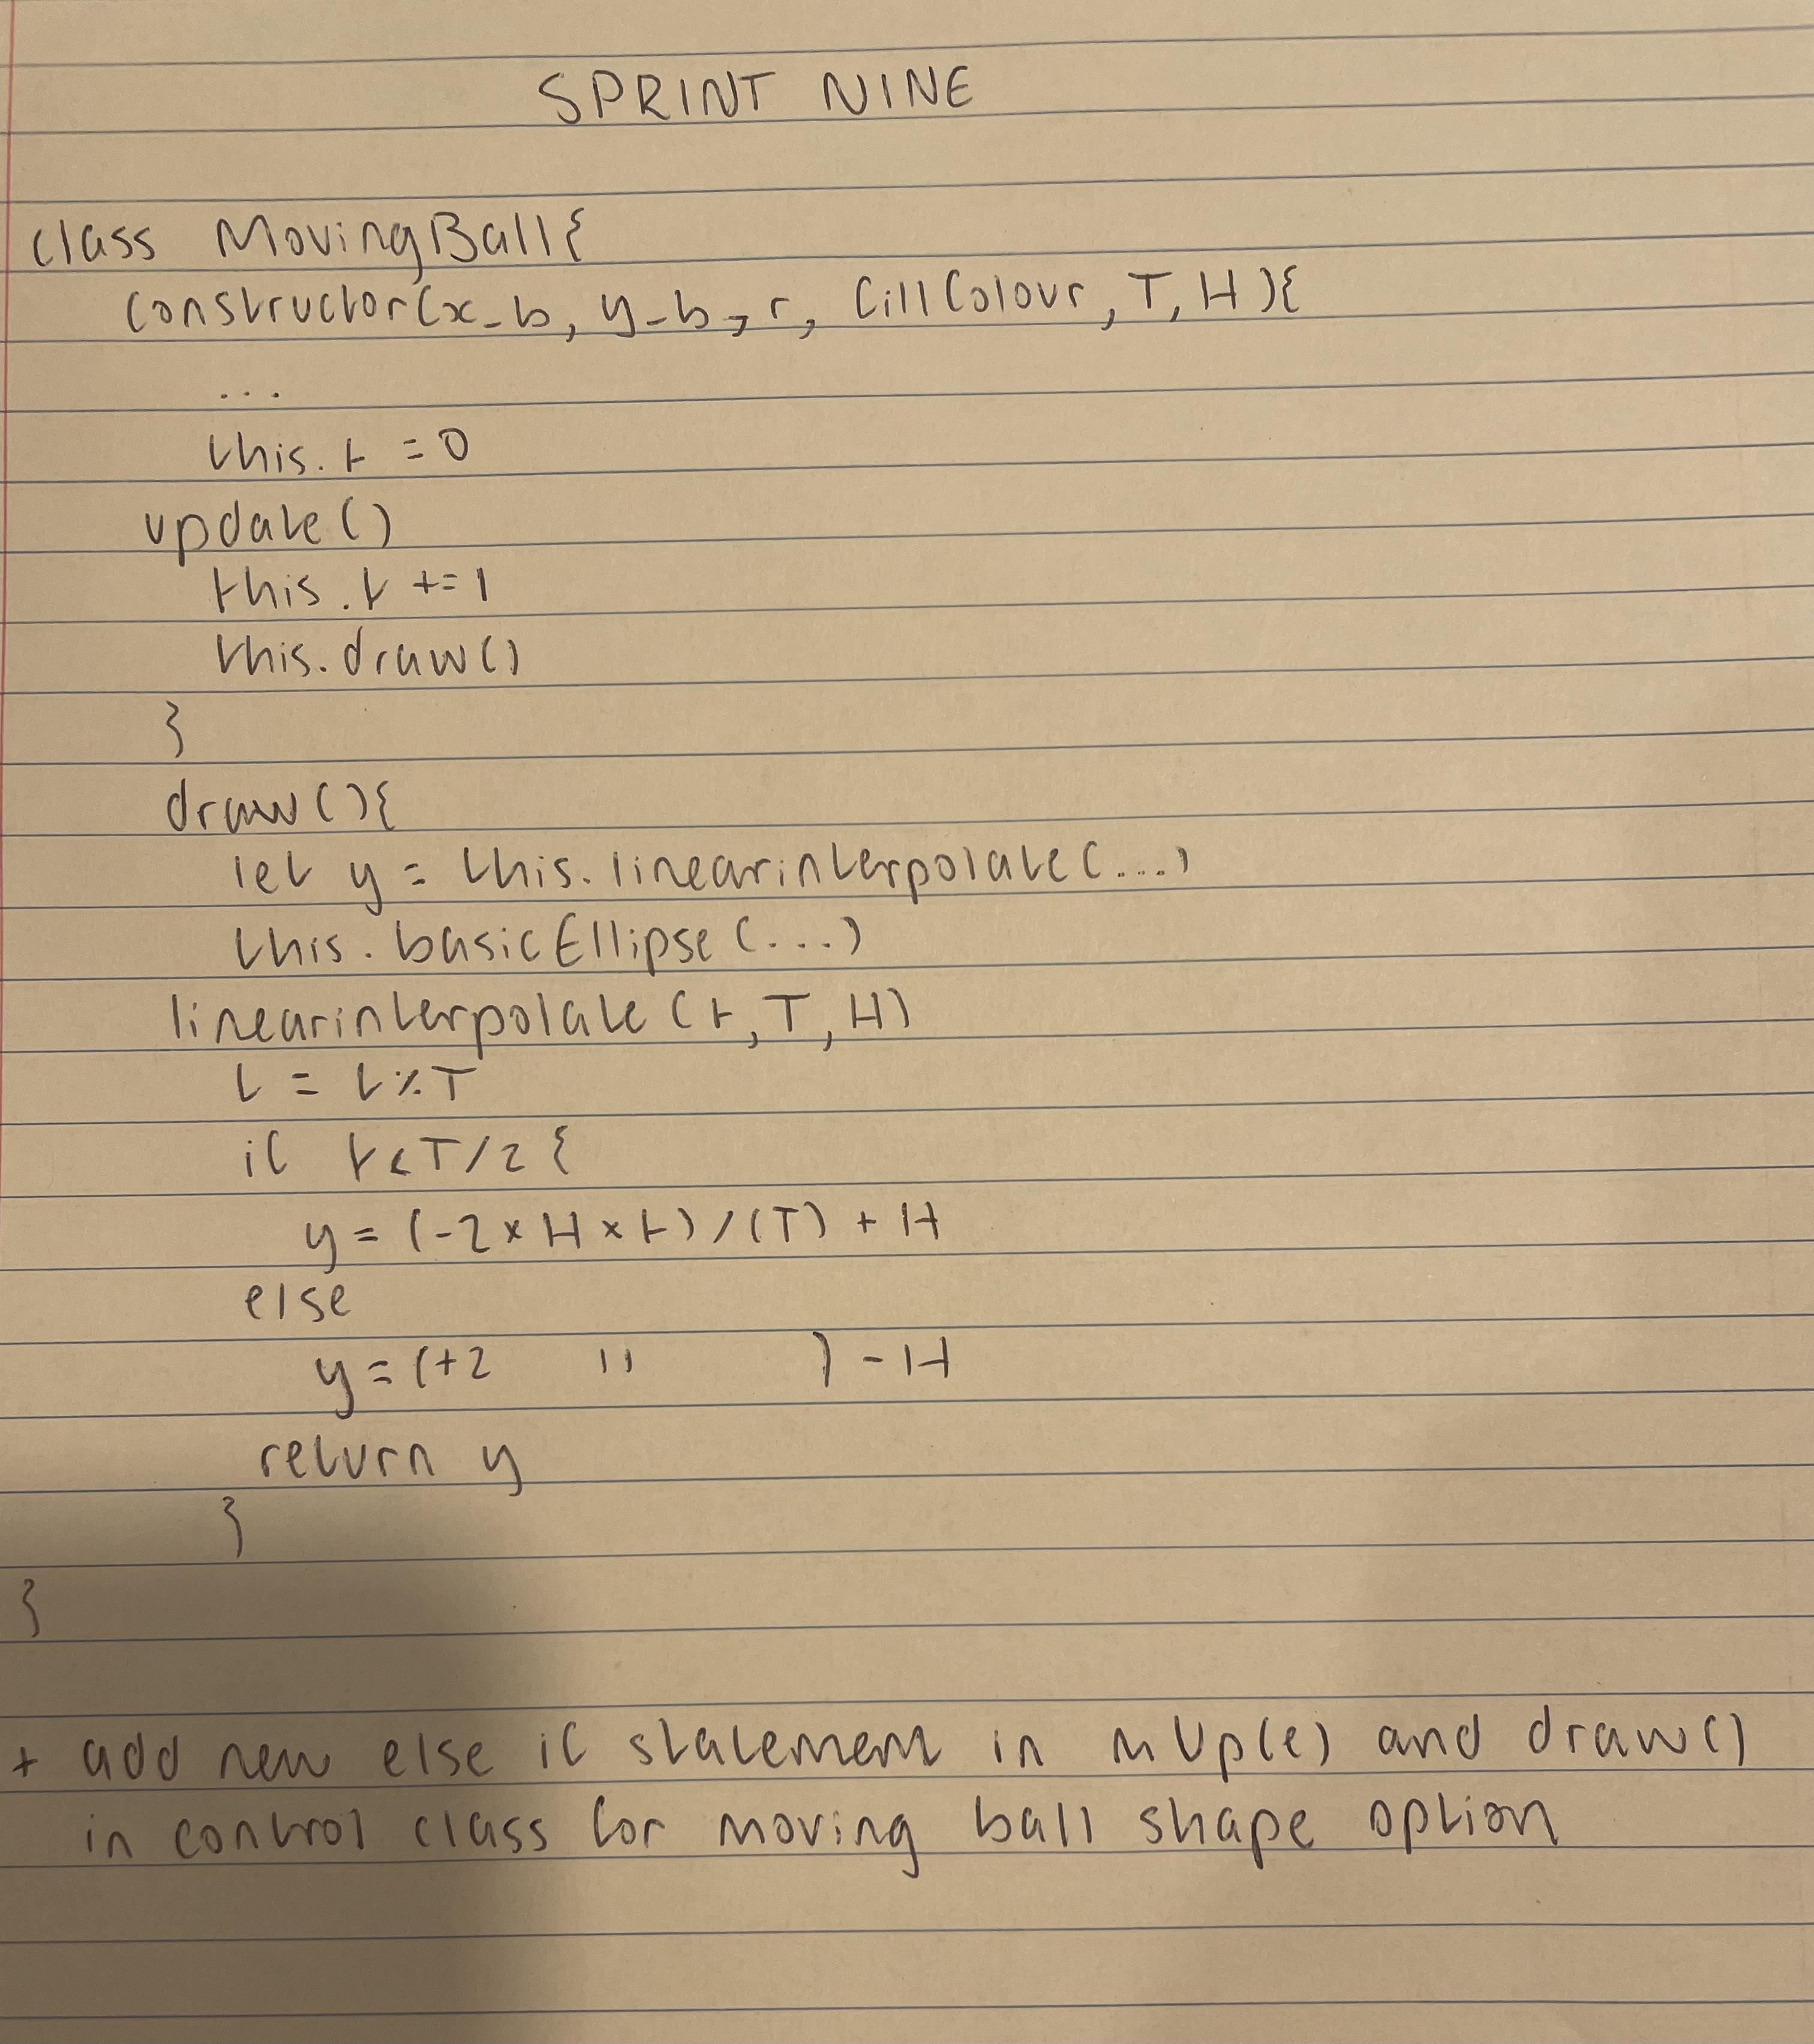 SPRINT NINE
class MovingBall{
constructor(x_b, y_b, r, fillColour, T, H){
...
this.t = 0
update()
this.t += 1
this.draw()
}
draw(){
let y = this.linearinterpolate(...)
this.basicEllipse(...)
linearinterpolate(t, T, H)
t = t%T
if t<T/2{
y = (-2 x H x t) / (T) + H
else
y = (+2 " ) - H
return y
}
}
+ add new else if statement in mUp(e) and draw()
in control class for moving ball shape option